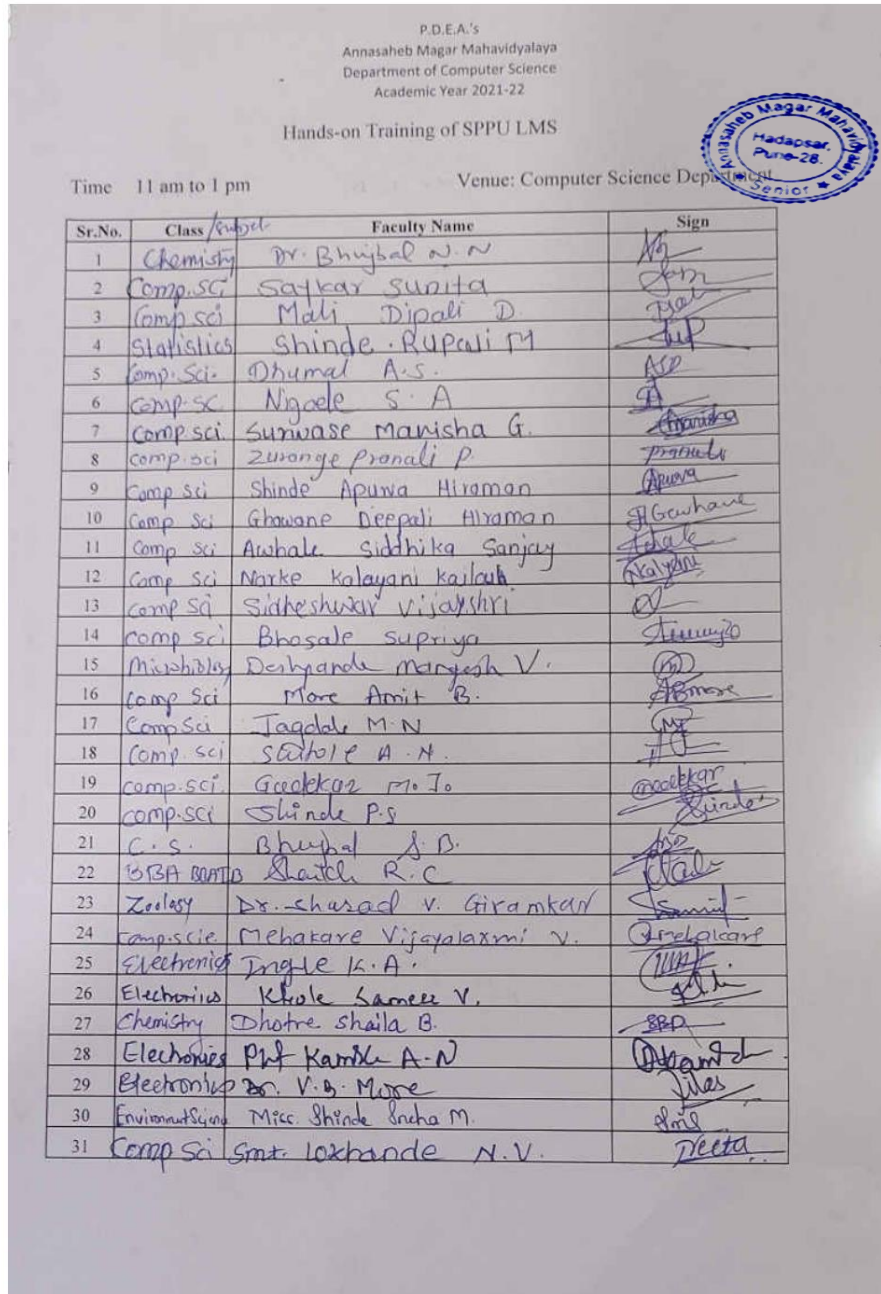 P.D.E.A.'s
Annasaheb Magar Mahavidyalaya
Department of Computer Science
Academic Year 2021-22
Hands-on Training of SPPU LMS
Annasaheb Magar Mahavidyalaya
Hadapsar,
Pune-28.
★ Senior ★
Time 11 am to 1 pm Venue: Computer Science Department
Sr.No. Class/Subject Faculty Name Sign
1 Chemistry Dr. Bhujbal N.N
2 Comp.sci Satkar Sunita
3 Comp sci Mali Dipali D.
4 Statistics Shinde. Rupali M
5 Comp. Sci. Dhumal A.S. ASD
6 Comp.sc S. A SA
7 Comp sci. Surwase Manisha G. Manisha
8 comp.sci Zurange Pranali P. Pranali
9 Comp Sci Shinde Apurva Hiraman Apurva
10 Comp Sci Ghawane Deepali Hiraman
11 Comp Sci Awhale Siddhika Sanjay
12 Comp Sci Narke Kalayani Kailash Kalyani
13 Comp Sci Sidheshwar Vijayshri
14 Comp Sci Bhosale Supriya
15 Microbiology Deshpande Mangesh V.
16 Comp Sci More Amit B. ABmore
17 Comp Sci Jagdale M.N
18 Comp. sci A.N.
19 comp.sci. M.J.
20 comp.sci Shinde P.S Shinde
21 C.S. Bhujbal S.B.
22 BBA R.C
23 Zoology Dr. Sharad V. Giramkar
24 Comp.scie. Mehakare Vijayalaxmi V. Mehakare
25 Electronics Ingle K.A.
26 Electronics Khole Sameer V.
27 Chemistry Dhotre Shaila B. SBD
28 Electronics Prf Kamble A-N
29 Electronics Dr. V.B. More Vilas
30 Miss. Shinde Sneha M.
31 Comp Sci Smt. Lokhande N.V. Neeta